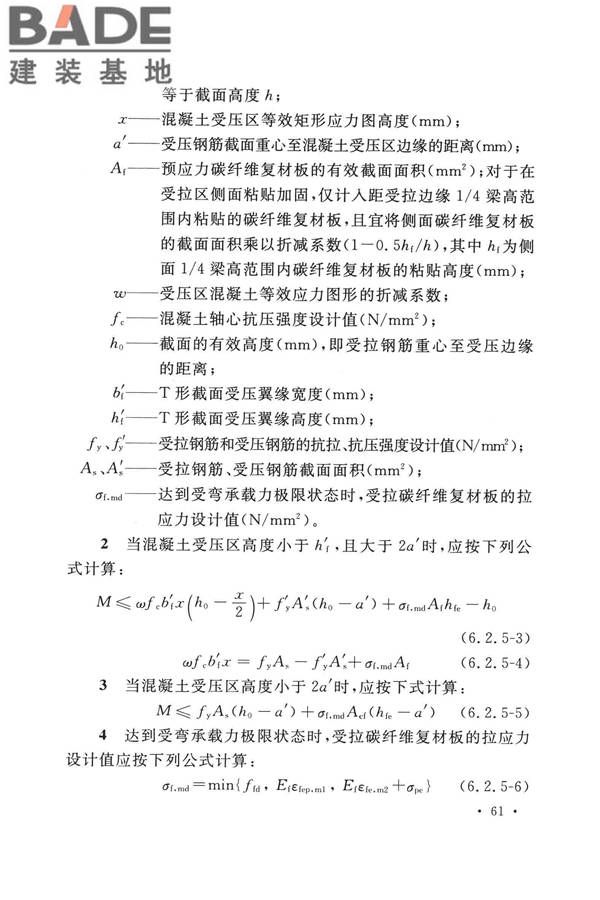 BADE
建装基地
等于截面高度 h；
x——混凝土受压区等效矩形应力图高度(mm)；
a′——受压钢筋截面重心至混凝土受压区边缘的距离(mm)；
A_f——预应力碳纤维复材板的有效截面面积(mm²)；对于在
受拉区侧面粘贴加固,仅计入距受拉边缘 1/4 梁高范
围内粘贴的碳纤维复材板,且宜将侧面碳纤维复材板
的截面面积乘以折减系数(1−0.5h_f/h),其中 h_f为侧
面 1/4 梁高范围内碳纤维复材板的粘贴高度(mm)；
w——受压区混凝土等效应力图形的折减系数；
f_c——混凝土轴心抗压强度设计值(N/mm²)；
h_0——截面的有效高度(mm),即受拉钢筋重心至受压边缘
的距离；
b′_f——T 形截面受压翼缘宽度(mm)；
h′_f——T 形截面受压翼缘高度(mm)；
f_y、f′_y——受拉钢筋和受压钢筋的抗拉、抗压强度设计值(N/mm²)；
A_s、A′_s——受拉钢筋、受压钢筋截面面积(mm²)；
σ_f,md——达到受弯承载力极限状态时,受拉碳纤维复材板的拉
应力设计值(N/mm²)。
2 当混凝土受压区高度小于 h′_f,且大于 2a′时,应按下列公
式计算：
M⩽ωf_cb′_fx(h_0−x/2)+f′_yA′_s(h_0−a′)+σ_f,mdA_fh_fe−h_0
(6.2.5-3)
ωf_cb′_fx=f_yA_s−f′_yA′_s+σ_f,mdA_f (6.2.5-4)
3 当混凝土受压区高度小于 2a′时,应按下式计算：
M⩽f_yA_s(h_0−a′)+σ_f,mdA_ef(h_fe−a′) (6.2.5-5)
4 达到受弯承载力极限状态时,受拉碳纤维复材板的拉应力
设计值应按下列公式计算：
σ_f,md=min{f_fd, E_fε_fep,m1, E_fε_fe,m2+σ_pe} (6.2.5-6)
• 61 •